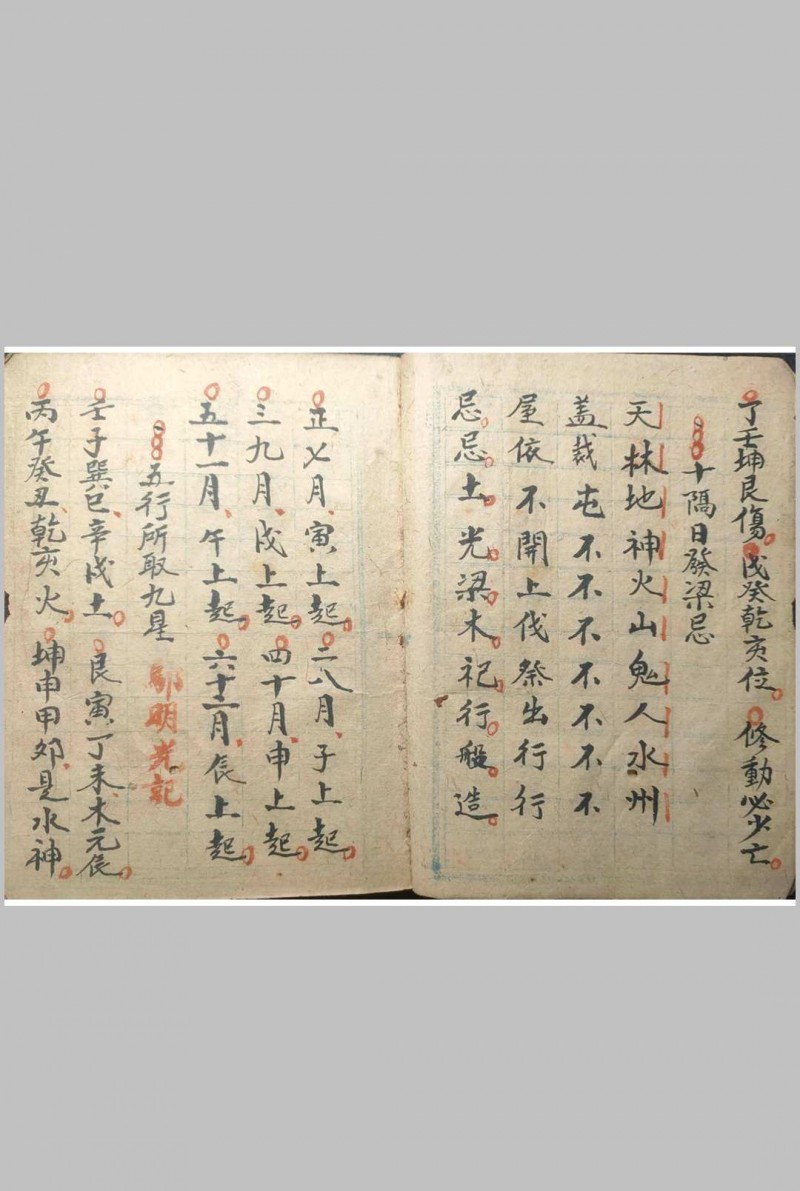 丁壬坤艮傷戊癸乾亥位修動必少亡
十隔日發梁忌
天林地神火山鬼人水州
盖裁屯不不不不不不不
屋依不開上伐祭出行行
忌忌土光梁木祀行船造
正七月寅上起二八月子上起
三九月戌上起四十月申上起
五十一月午上起六十二月辰上起
五行所取九星
鄔明光記
壬子巽巳辛戌土艮寅丁未木元辰
丙午癸丑乾亥火坤申甲卯是水神